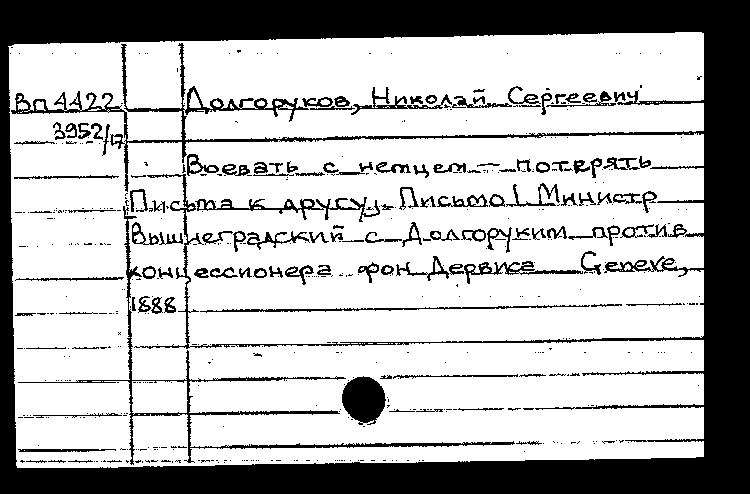 Вп 4422 Долгоруков, Николай Сергеевич
3952/17
Воевать с немцем — потерять
Письма к другу. Письмо I. Министр
Вышнеградский с Долгоруким против
концессионера фон Дервиса Geneve,
1888